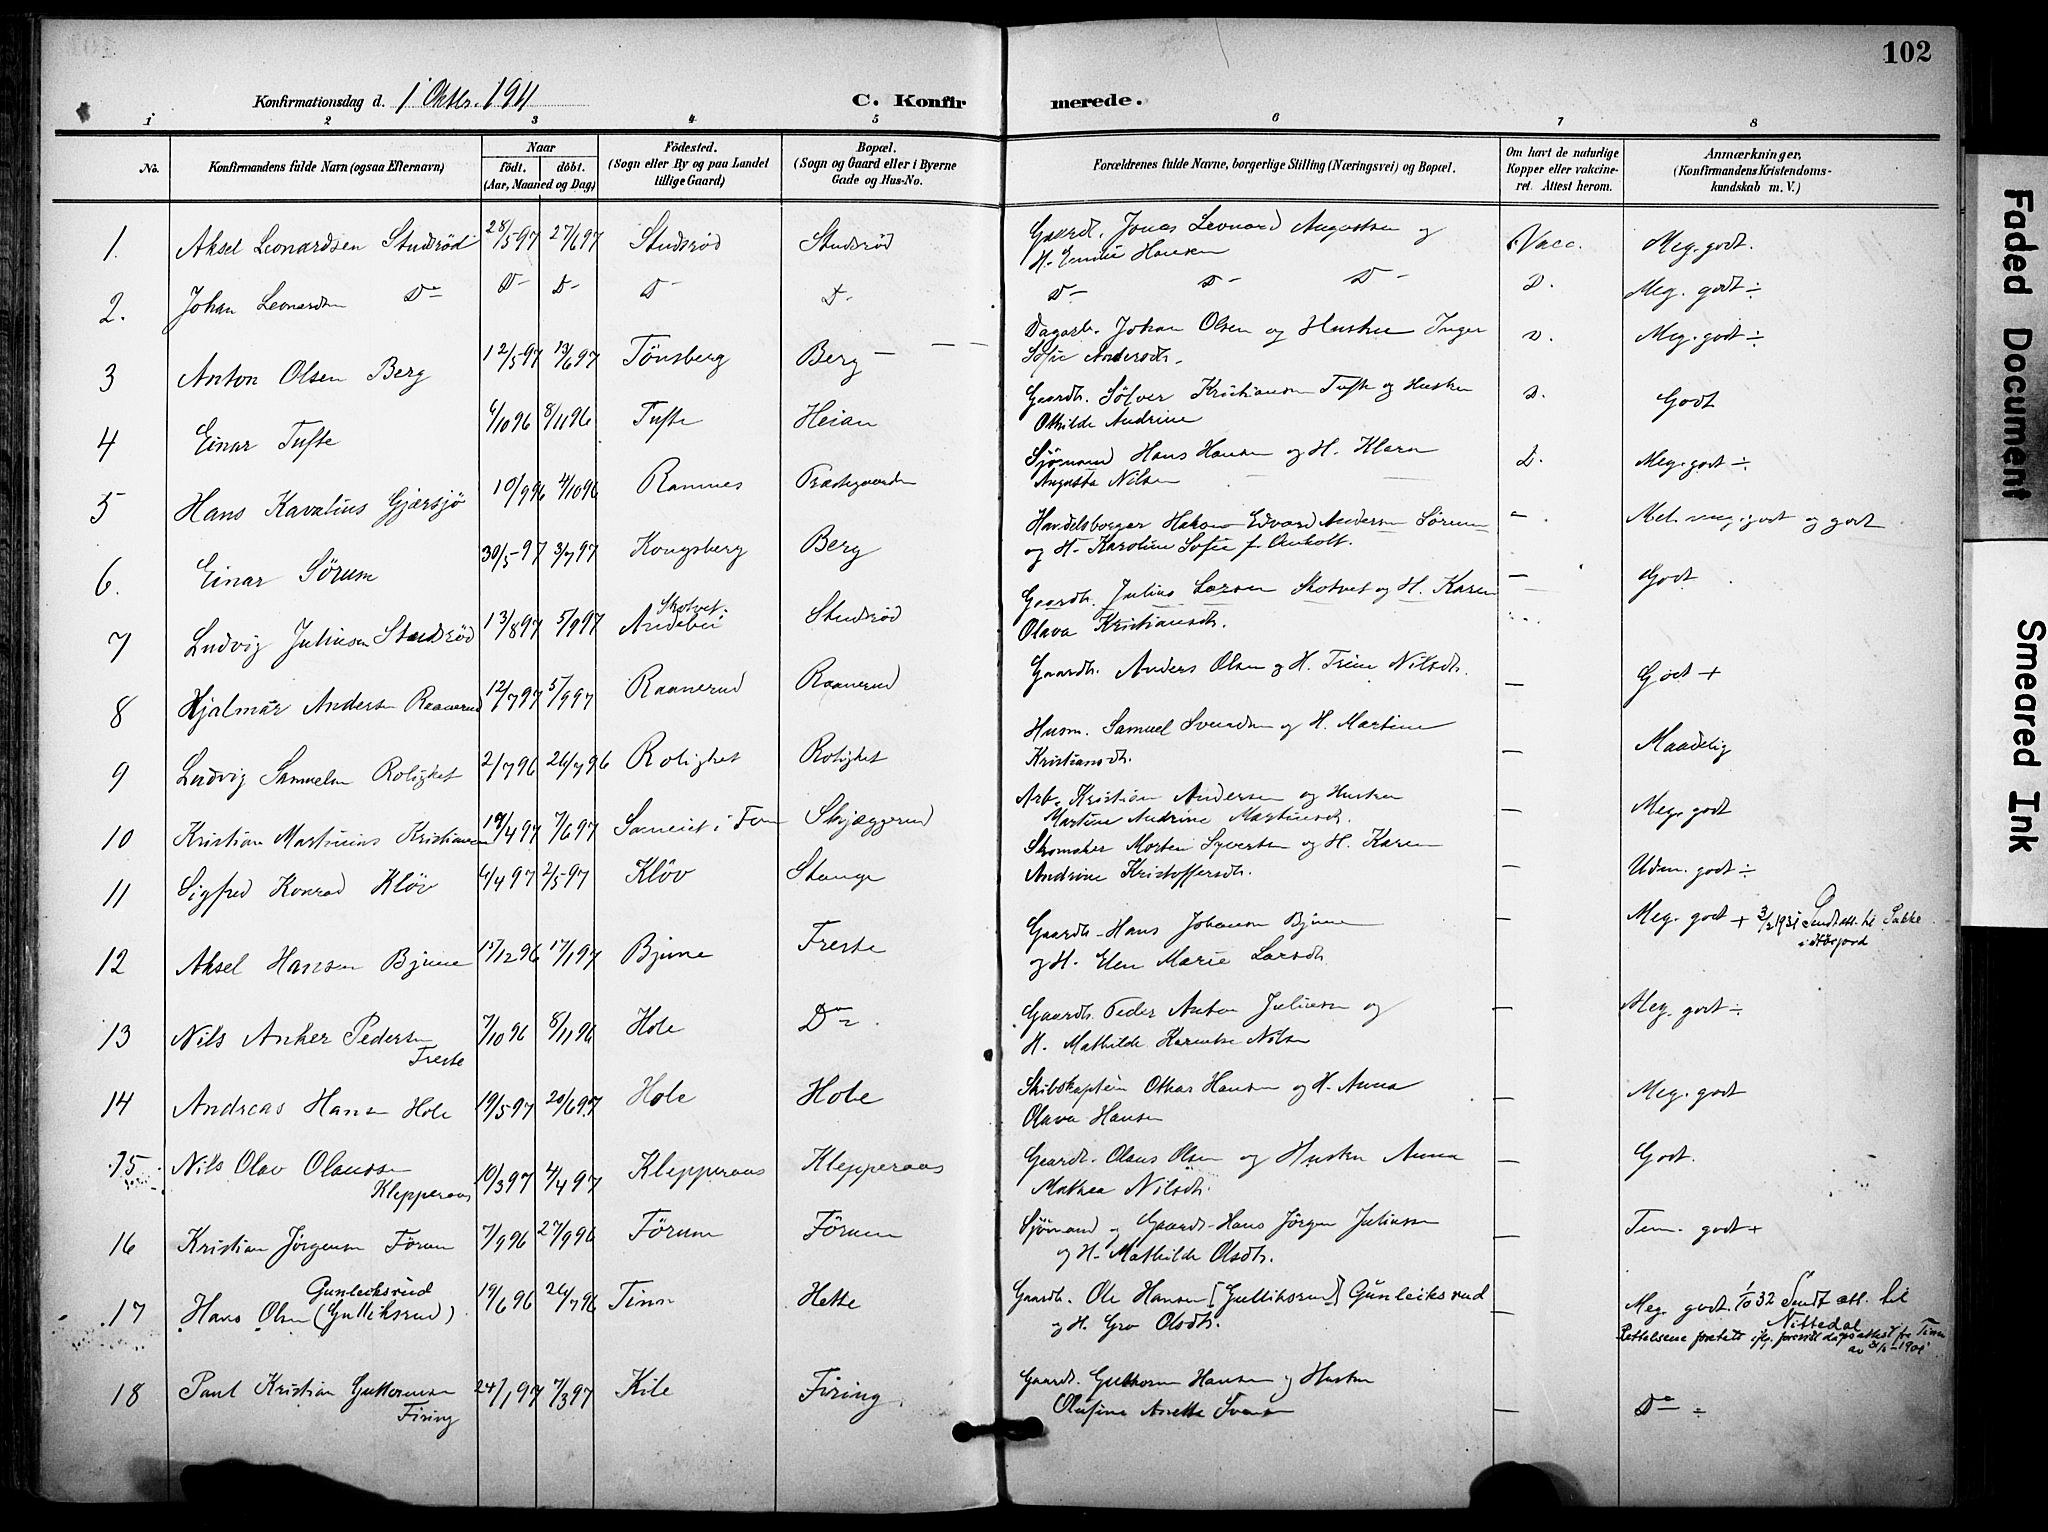 102
Konfirmationsdag d. 1 Oktbr. 1911
C. Konfirmerede.
1 2 3 4 5 6 7 8
No.
Konfirmandens fulde Navn (ogsaa Efternavn)
Naar
født. døbt.
(Aar, Maaned og Dag)
Fødested.
(Sogn eller By og paa Landet
tillige Gaard)
Bopæl.
(Sogn og Gaard eller i Byerne
Gade og Hus-No.
Forældrenes fulde Navne, borgerlige Stilling (Næringsvei) og Bopæl.
Om havt de naturlige
Kopper eller vakcine-
ret. Attest herom.
Anmærkninger.
(Konfirmandens Kristendoms-
kundskab m. V.)
1. Aksel Leonardsen Studsrød 28/5 97 27/6 97 Studsrød Studsrød Gaardb. Jonas Leonard Augustsen og
H. Emilie Hansen Vacc. Meg. godt.
2. Johan Leonardsen Do D- D- D- D- D- D- D- D. Meg. godt ÷
3 Anton Olsen Berg 12/5 97 13/6 97 Tönsberg Berg Dagarb. Johan Olsen og Hustru Inger
Sofie Andersdtr. D. Meg. godt ÷
4 Einar Tufte 6/10 96 8/11 96 Tufte Heian Gaardb. Sölver Kristiansen Tufte og Hustru
Othilde Andrine D. Godt
5 Hans Kavalius Gjersjö 10/9 96 4/10 96 Ramnes Præstegaarden Sjömand Hans Hansen og H. Klara
Augusta Nilsen D. Meg. godt ÷
6. Einar Sörum 30/5 97 3/7 97 Kongsberg Berg Handelsborger Hakon Edvard Andersen Sörum
og H. Karoline Sofie f. Anholt. - Mel. meg. godt og godt
7 Ludvig Juliusen Studsrød 13/8 97 5/9 97 Skotvet.
Andebu Studsrød Gaardb. Julius Larsen Skotvet og H. Karen
Olava Kristiansdtr. — Godt
8 Hjalmar Andersen Raanerud 12/7 97 5/9 97 Raanerud Raanerud Gaardb. Anders Olsen og H. Trine Nilsdtr. — Godt +
9 Ludvig Samuelsen Rolighet 2/7 96 26/7 96 Rolighet Rolighet Husm. Samuel Svendsen og H. Martine
Kristiansdtr. — Maadelig
10 Kristian Martinius Kristiansen 19/4 97 7/6 97 Sameiet i Fon Skjæggerud Arb. Kristian Andersen og Hustru
Martine Andrine Martinsdtr. — Meg. godt
11 Sigfred Konrad Klöv 6/4 97 2/5 97 Klöv Stange Skomaker Morten Syvertsen og H. Karen
Andrine Kristoffersdtr. — Udm. godt ÷
12 Aksel Hansen Bjune 15/12 96 17/1 97 Bjune Freste Gaardb. Hans Johansen Bjune
og H. Elen Marie Larsdtr. — Meg. godt + 3/2 1931 Sendt att. til Sakke
13 Nils Anker Pedersen
Freste 7/10 96 8/11 96 Hole Do Gaardb. Peder Anton Juliusen og
H. Mathilde Karentse Nilsen — Meg. godt ÷
14 Andreas Hansen Hole 19/5 97 20/6 97 Hole Hole Skibskaptein Othar Hansen og H. Anna
Olava Hansen — Meg. godt
15 Nils Olav Olaussen
Klepperaas 10/3 97 4/4 97 Klepperaas Klepperaas Gaardb. Olaus Olsen og Hustru Anna
Mathea Nilsdtr. — Godt.
16 Kristian Jörgensen Förum 7/9 96 27/9 96 Förum Förum Sjömand og Gaardb. Hans Jörgen Juliussen
og H. Mathilde Olsdtr. — Tem. godt +
17 Gunleiksrud
Hans Olsen (Gulliksrud) 19/6 96 26/7 96 Tinn Hette Gaardb. Ole Hansen [Gulliksrud] Gunleiksrud
og H. Gro Olsdtr. — Meg. godt. 1/10 32 Sendt att. til
Nittedal
Rettelsene foretatt iflg. foresvist dåpsattest fra Tinn
18 Paul Kristian Guttormsen
Firing 24/1 97 7/3 97 Kile Firing Gaardb. Guttorm Hansen og Hustru
Olufine Anette — Do ÷
Faded Document
Smeared Ink